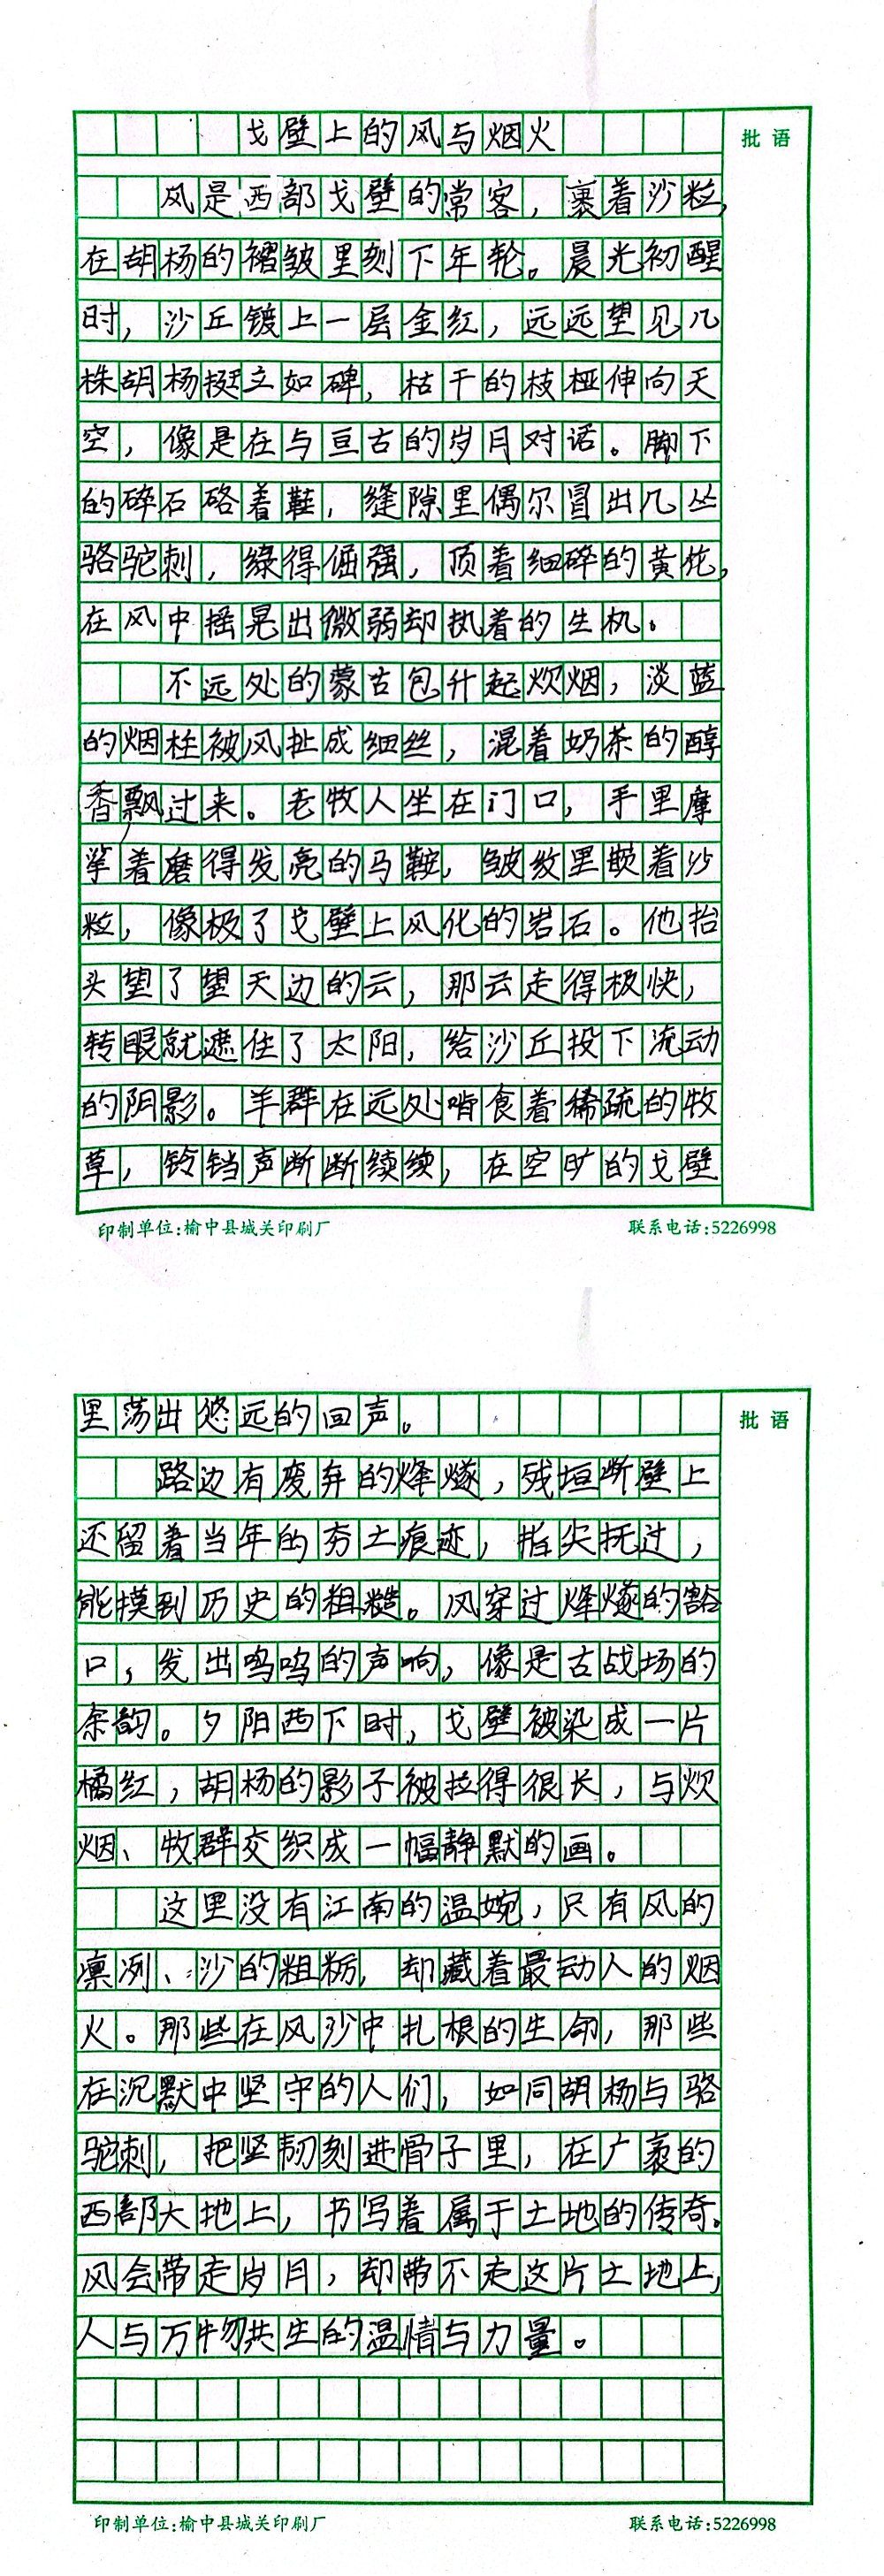 戈壁上的风与烟火
批语
风是西部戈壁的常客，裹着沙粒，
在胡杨的褶皱里刻下年轮。晨光初醒
时，沙丘镀上一层金红，远远望见几
株胡杨挺立如碑，枯干的枝桠伸向天
空，像是在与亘古的岁月对话。脚下
的碎石硌着鞋，缝隙里偶尔冒出几丛
骆驼刺，绿得倔强，顶着细碎的黄花，
在风中摇晃出微弱却执着的生机。
不远处的蒙古包升起炊烟，淡蓝
的烟柱被风扯成细丝，混着奶茶的醇
香飘过来。老牧人坐在门口，手里摩
挲着磨得发亮的马鞍，皱纹里嵌着沙
粒，像极了戈壁上风化的岩石。他抬
头望了望天边的云，那云走得极快，
转眼就遮住了太阳，给沙丘投下流动
的阴影。羊群在远处啃食着稀疏的牧
草，铃铛声断断续续，在空旷的戈壁
印制单位:榆中县城关印刷厂 联系电话:5226998
里荡出悠远的回声。
批语
路边有废弃的烽燧，残垣断壁上
还留着当年的夯土痕迹，指尖抚过，
能摸到历史的粗糙。风穿过烽燧的豁
口，发出呜呜的声响，像是古战场的
余韵。夕阳西下时，戈壁被染成一片
橘红，胡杨的影子被拉得很长，与炊
烟、牧群交织成一幅静默的画。
这里没有江南的温婉，只有风的
凛冽、沙的粗粝，却藏着最动人的烟
火。那些在风沙中扎根的生命，那些
在沉默中坚守的人们，如同胡杨与骆
驼刺，把坚韧刻进骨子里，在广袤的
西部大地上，书写着属于土地的传奇。
风会带走岁月，却带不走这片土地上，
人与万物共生的温情与力量。
印制单位:榆中县城关印刷厂 联系电话:5226998